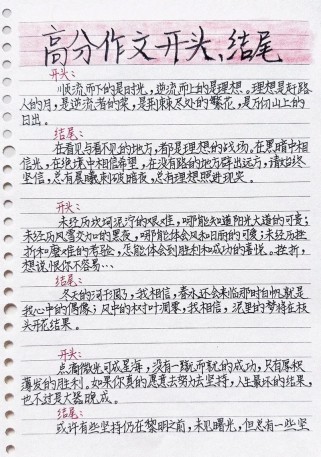 高分作文开头、结尾
开头:
顺流而下的是时光,逆流而上的是理想。理想是赶路
人的月,是逆流者的桨,是荆棘尽处的繁花,是万仞山上的
日出。
结尾:
在看见看不见的地方,都是理想的战场,在黑暗中相
信光,在绝境中相信希望,在没有路的地方辟出远方,请始终
坚信,总有晨曦刺破暗夜,总有理想照进现实。
开头:
未经历坎坷泥泞的艰难,哪能知道阳光大道的可贵;
未经历风雪交加的黑夜,哪能体会风和日丽的可爱;未经历挫
折和磨难的考验,怎能体会到胜利和成功的喜悦。挫折,
想说恨你不容易…
结尾:
冬天的河干涸了,我相信,春水还会来临那时白帆就是
我心中的偶像;风中的树叶凋零,我相信,泥里的梦将在枝
头开花结果。
开头:
点滴微光可成星海,没有一蹴而就的成功,只有厚积
薄发的胜利。如果你真的愿意去努力去坚持,人生最坏的结果,
也不过是大器晚成。
结尾:
或许有些坚持仍在黎明之前,未见曙光,但总有一些坚